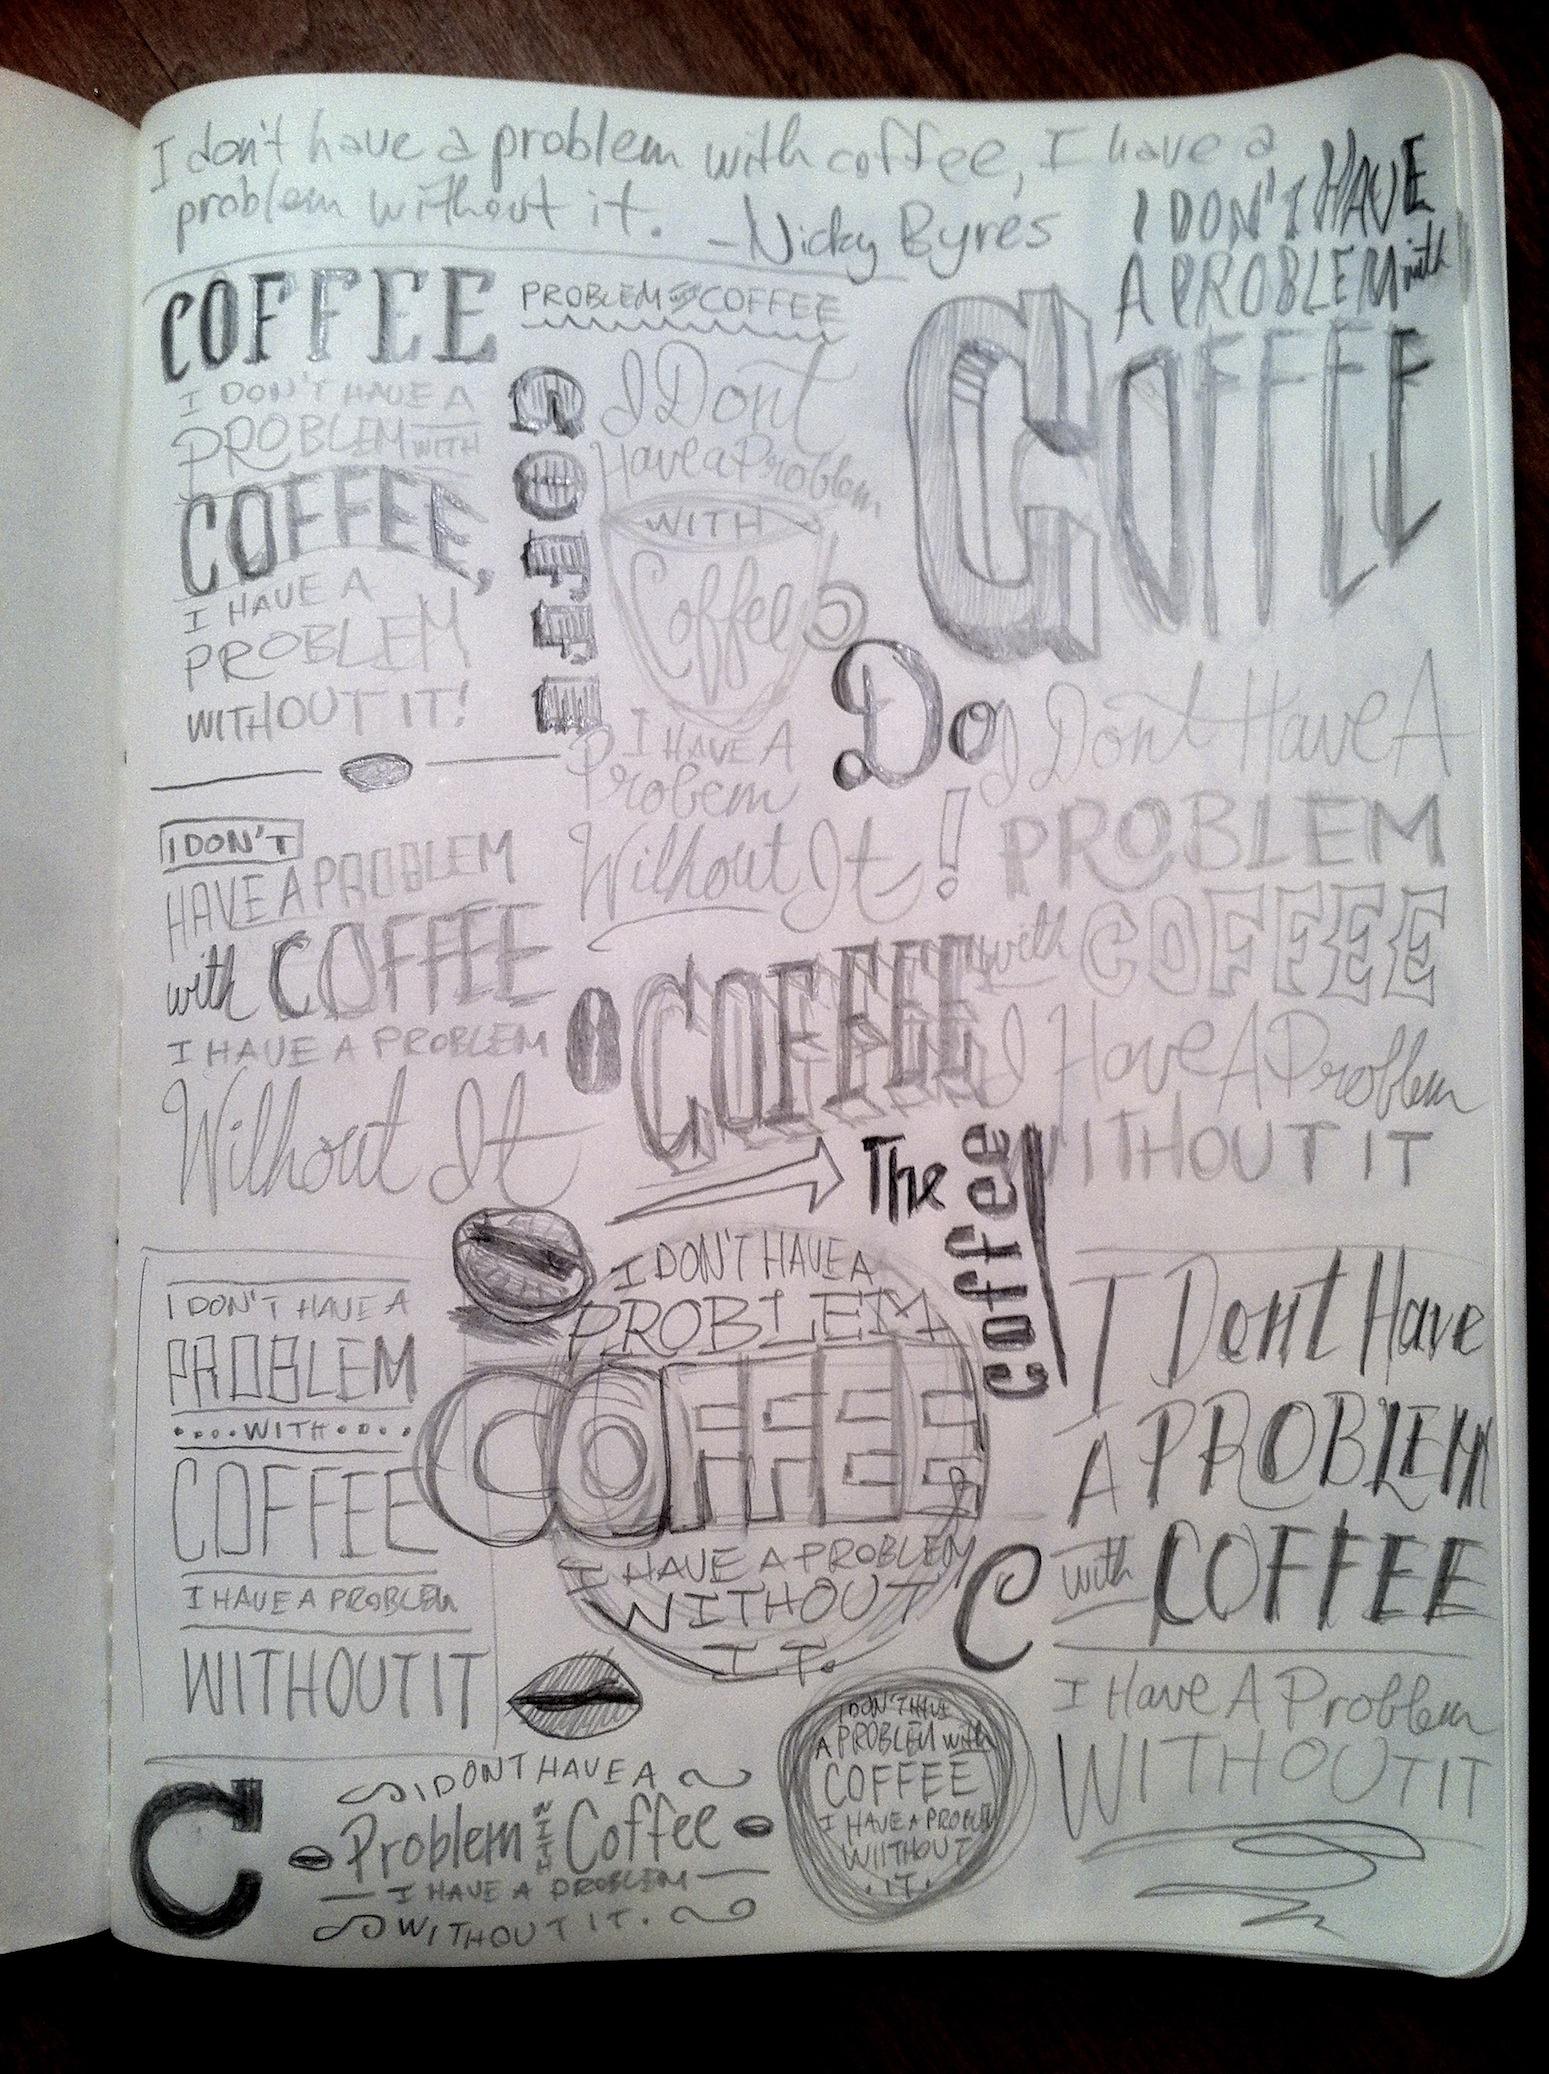 I don't have a problem with coffee, I have a
problem without it. -Nicky Byres
COFFEE
I DON'T HAVE A
PROBLEM WITH
COFFEE,
I HAVE A
PROBLEM
WITHOUT IT!
PROBLEM with COFFEE
COFFEE
I Dont
Have a Problem
WITH
Coffee
I HAVE A
Probem
Without It!
I DON'T HAVE
A PROBLEM with
COFFEE
Do
I Dont Have A
PROBLEM
with COFFEE
I Have A Problem
WITHOUT IT
I DON'T
HAVE A PROBLEM
with COFFEE
I HAVE A PROBLEM
Without It
COFFEE
The
coffee
I DON'T HAVE A
PROBLEM
WITH
COFFEE
I HAVE A PROBLEM
WITHOUT IT
I DON'T HAVE A
PROBLEM
COFFEE
I HAVE A PROBLEM
WITHOUT
IT.
I Dont Have
A PROBLEM
with COFFEE
I Have A Problem
WITHOUT IT
C
C
I DONT HAVE A
Problem WITH Coffee
I HAVE A PROBLEM
WITHOUT IT.
I DON'T HAVE
A PROBLEM with
COFFEE
I HAVE A PROBLEM
WIITHOUT
. IT.